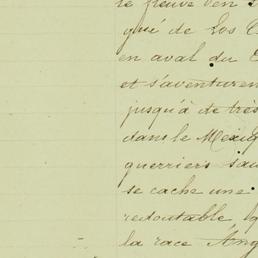 le fleuve
qué de Los
en aval du
et s'aventuren
jusqu'à de très
dans le Mexiq
guerriers sau
se cache une
redoutable
la race Ang